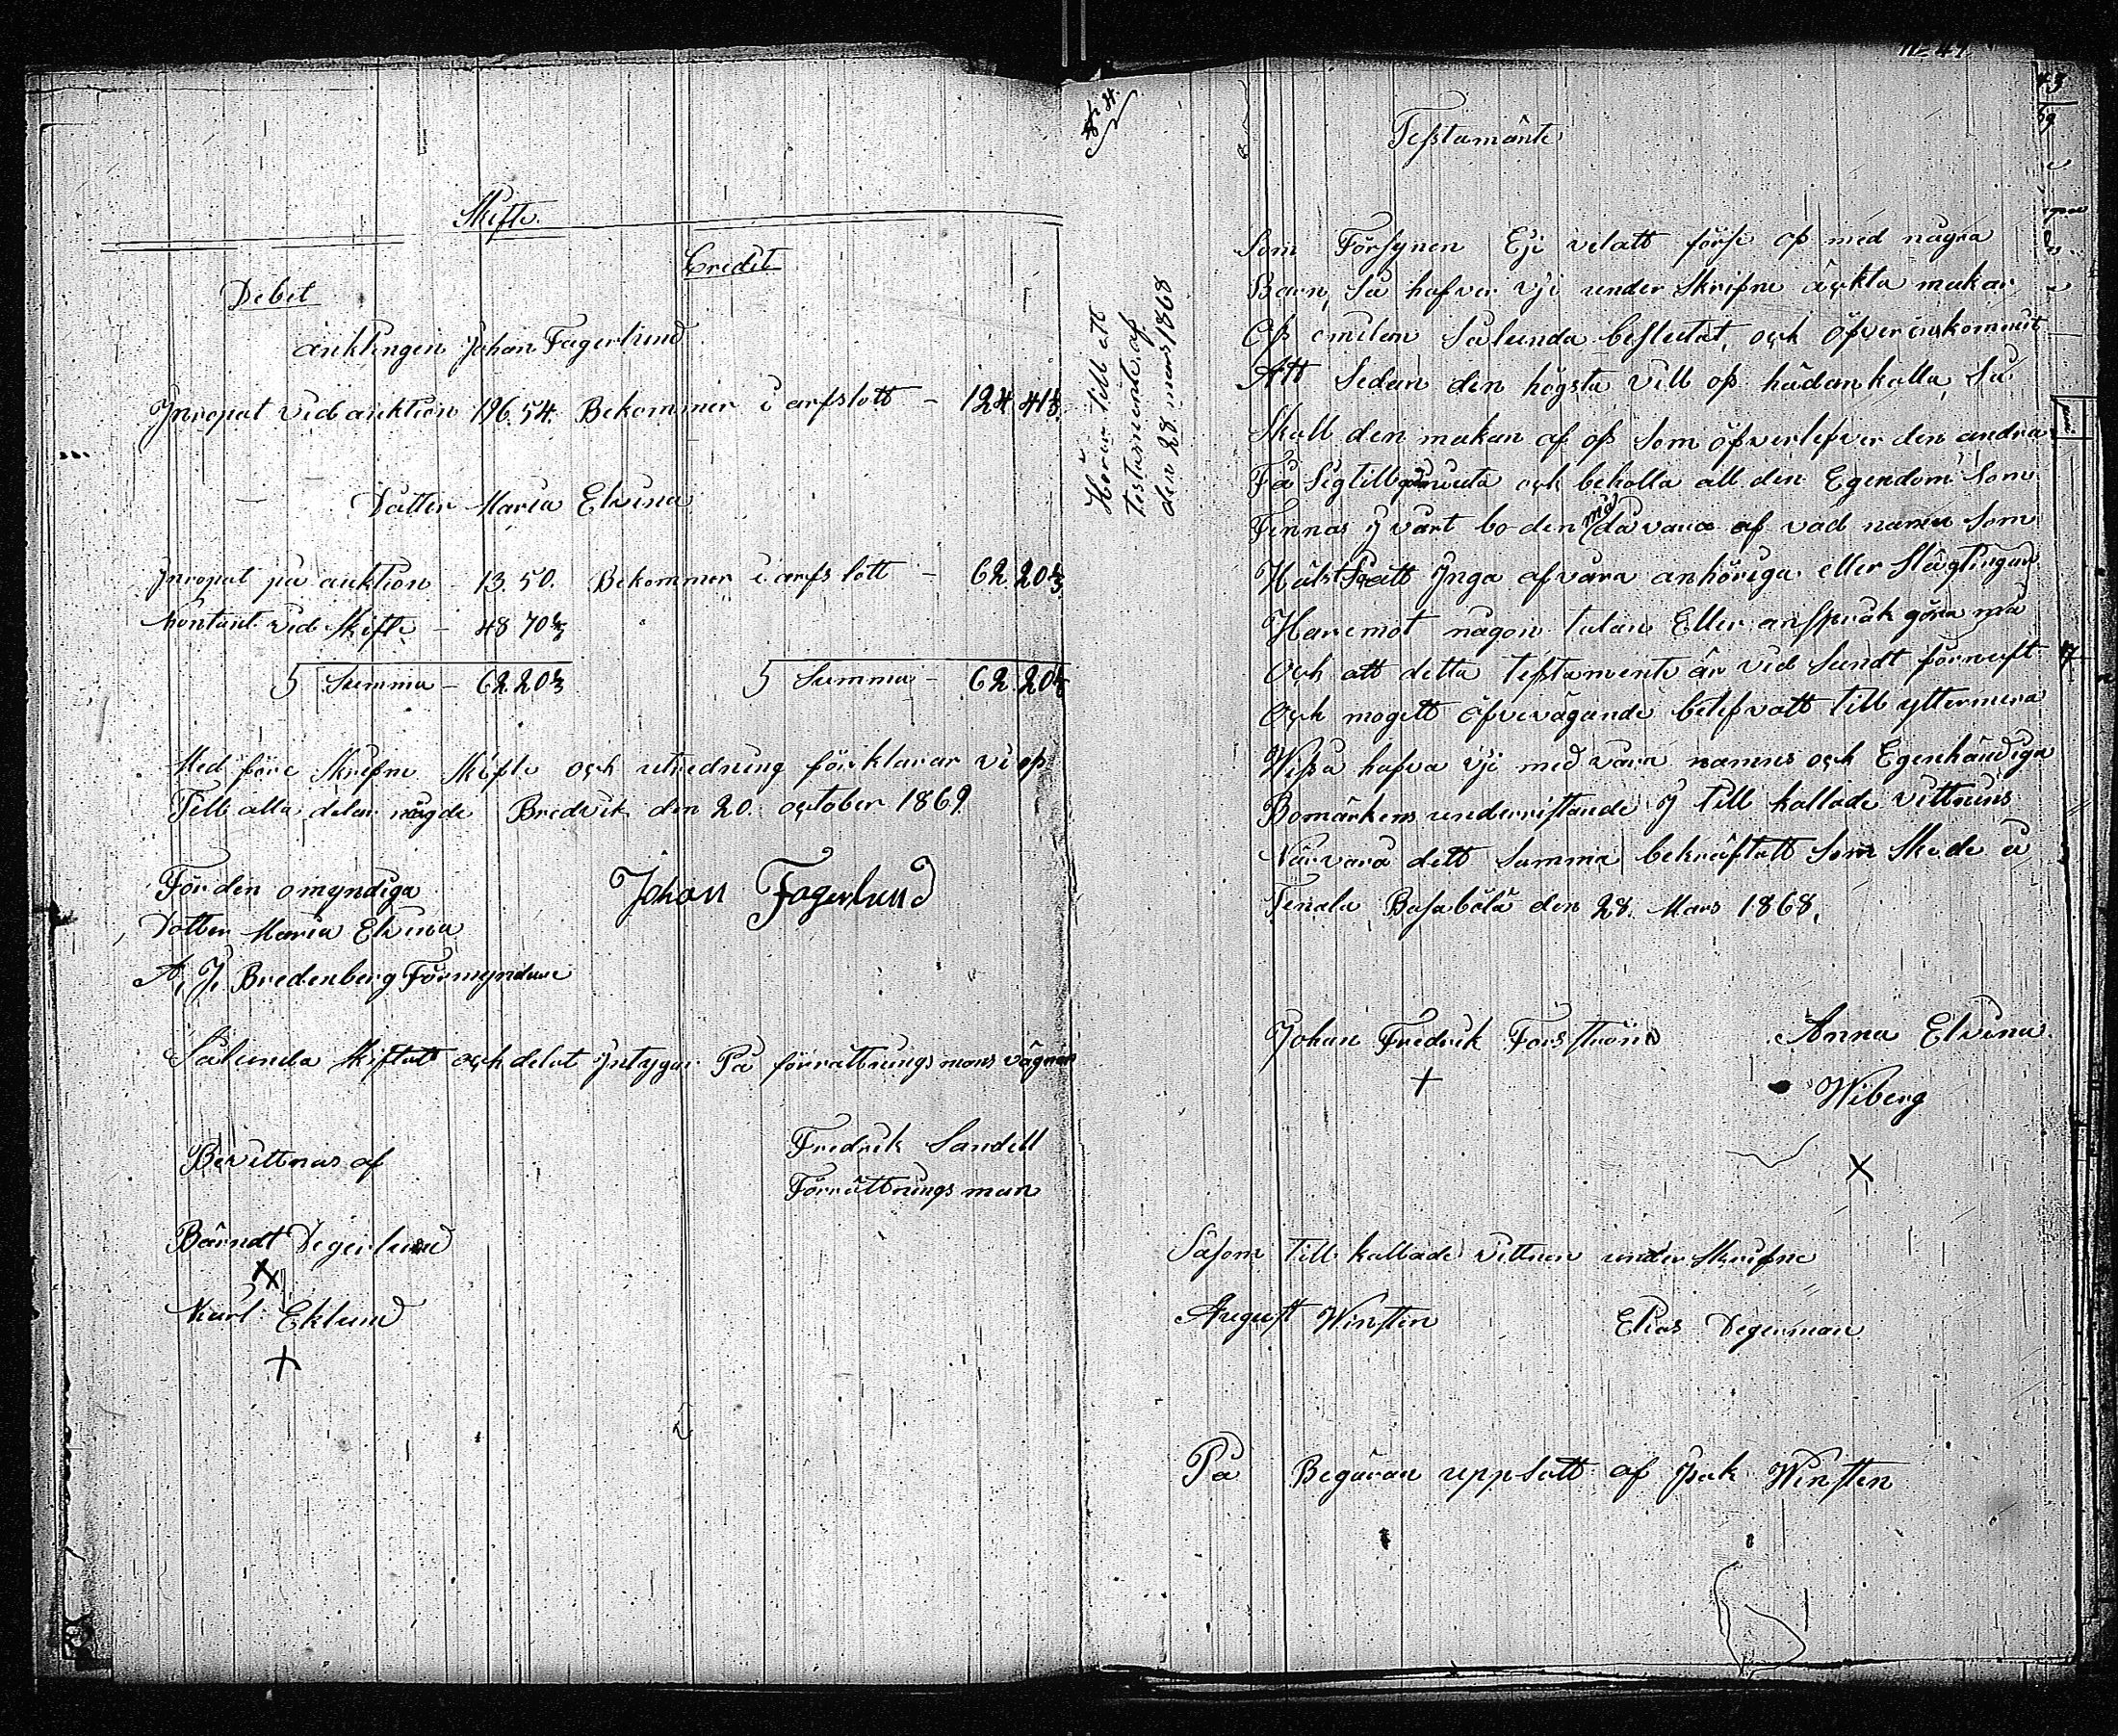 Skifte
Debet
Credit
änklingen Johan Fagerlund
Inropat vid auktion 196.54. Bekommer i arfslott - 124 41⅓
Dotter Maria Elvina
Inropat på auktion - 13.50. Bekommer i arfs lott - 62 20⅔
Kontant vid Skifte - 48 70⅔
Summa - 62 20⅔ Summa - 62 20⅔
Med före Skrefne Skifte och utredning förklarar vi oss
Till alla delar nögde Bredvik den 20. october 1869.
För den omyndiga
Dotter Maria Elvina
A, J, Bredenberg Förmyndare
Johan Fagerlund
Sålunda Skiftat och delat Intygar På förrättningsmans vägnar
Fredrik Sandell
Förrättningsman
Bevittnas af
Bärndt Degerlund
Karl Eklund
Hörer till ett
testamente af
den 28 mars 1868
Testamänte
Som Försynen Eji velatt förse oss med några
Barn, Så hafver vji under Skrifne äckta makar
Oss emilan Sålunda beslutat, och öfverenskommit
Att Sedan den högsta vill oss hädankalla, Så
Skall den makan af oss Som öfverlefver den andra
Få Sig till godo niuta och beholla all den Egendom Som
Finnas i vårt bo den må då vara af vad namn Som
Hälst Så att Inga af våra anhöriga eller Slägtingar
Häremot någon talan Eller anspråk göra må
Och att detta testamente är vid Sundt förnuft
Och mogett öfvevägande belefvatt till yttermera
Wissa hafva vji med våra namns och Egenhändiga
Bomärkens underristande I till kallade vittnens
Närvara dett Samma bekräftatt Som Skede å
Tenala Basaböle den 28. Mars 1868.
Johan Fredrik Forsström Anna Elvina
Wiberg
Såsom till kallade vittnen under Skrifne
August Winsten Elias Degerman
På Begäran uppsatt af Isak Winsten